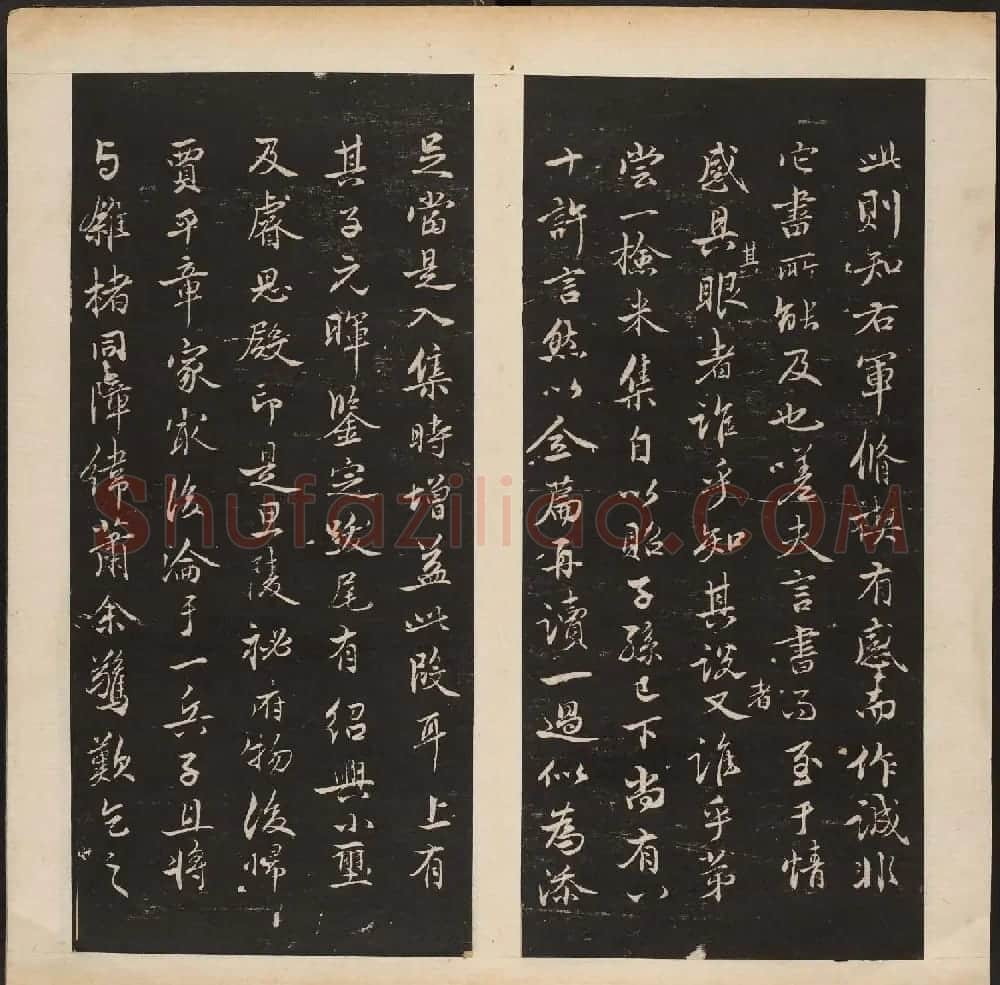 此則知右軍脩禊有感而作誠非
它書所能及也嗟夫言書而至于情
感具其眼者誰乎知其説者又誰乎第
嘗一撿米集自以貽子孫已下尚有八
十許言然以全篇再讀一過似為添
足當是入集時增益此段耳上有
其子元暉鑒定跋尾有紹興小璽
及睿思殿印是思陵祕府物後歸
賈平章家最後淪于一兵子且將
与雜楮同障緯蕭余驚歎乞之
Shufaziliao.COM